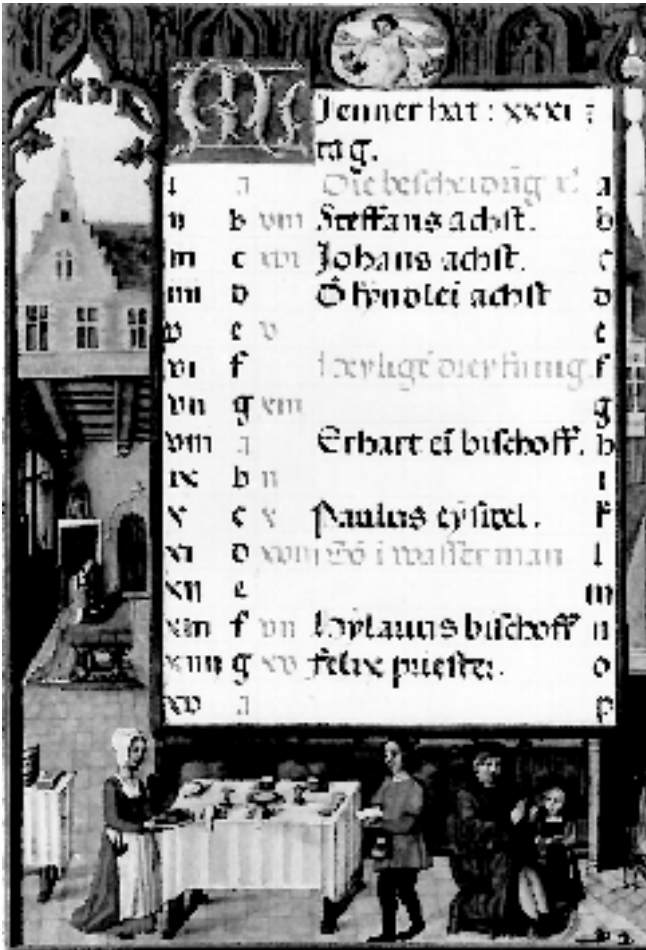 Jenner hat : xxxi
tag.
i a Die bescheidūg a
ii b viii Steffans achst. b
iii c xvi Johans achst. c
iiii d achst d
v e v e
vi f f
vii g xiii g
viii a Erhart bischoff. h
ix b ii i
x c x Paulus eỹsidel. k
xi d xviii i wasserman l
xii e m
xiii f vii Hylarius bischoff n
xiiii g xv felix priester. o
xv a p